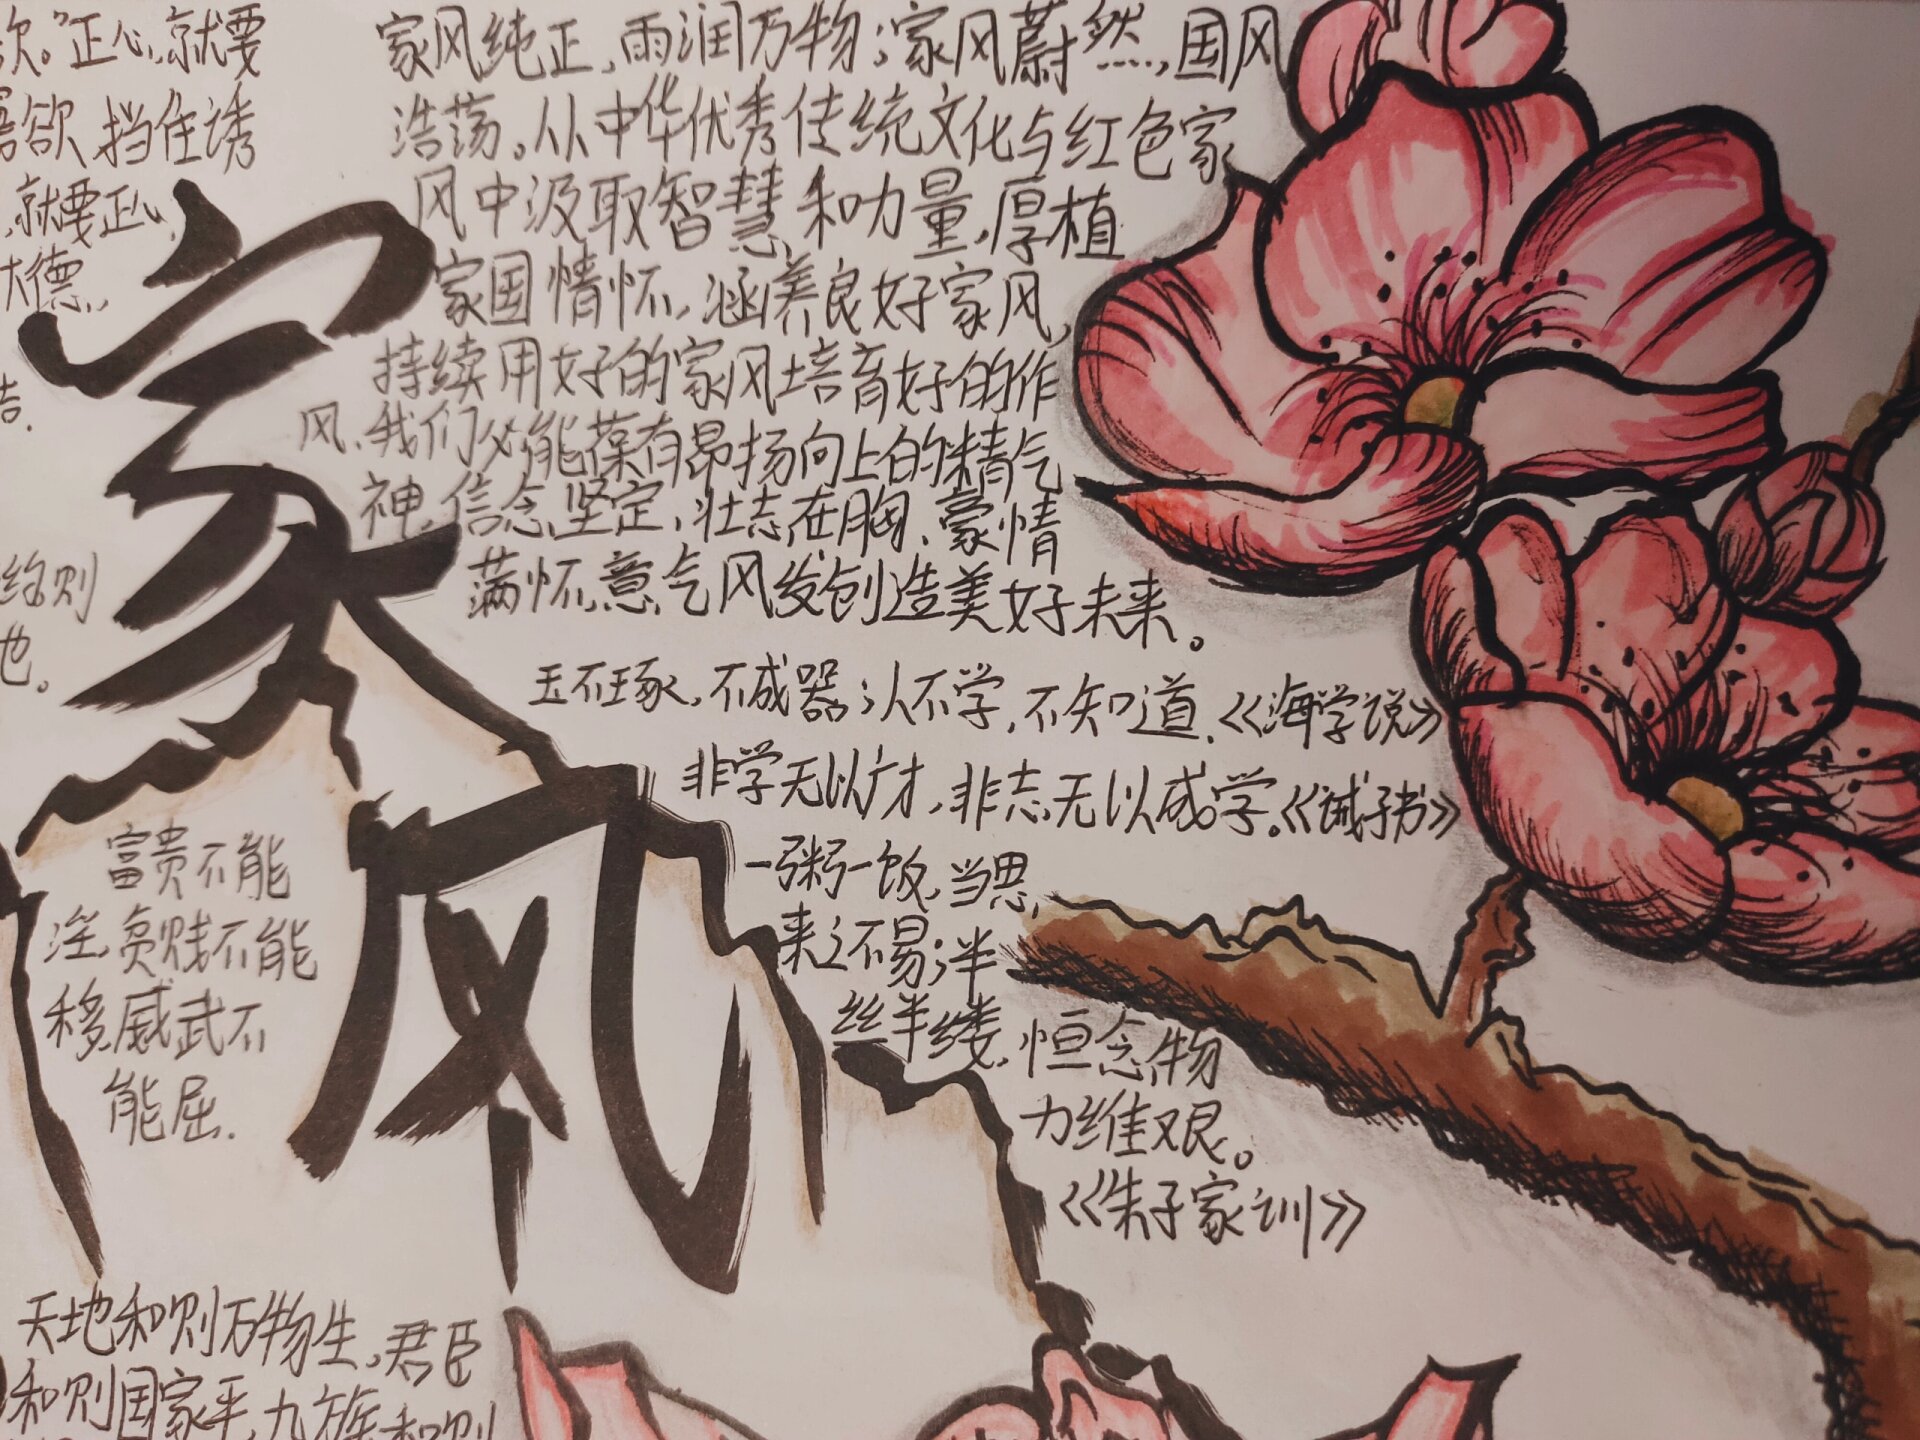 欲。"正心,就要
欲,挡住诱
,就要正心,
大德,
洁.
约则
也。
家风
家风纯正,雨润万物;家风蔚然,国风
浩荡。从中华优秀传统文化与红色家
风中汲取智慧和力量,厚植
家国情怀,涵养良好家风,
持续用好的家风培育好的作
风,我们必能葆有昂扬向上的精气
神,信念坚定,壮志在胸,豪情
满怀,意气风发创造美好未来。
玉不琢,不成器;人不学,不知道.《海学说》
非学无以广才,非志无以成学。《诫子书》
一粥一饭,当思,
来之不易;半
丝半缕,恒念物
力维艰。
《朱子家训》
富贵不能
淫,贫贱不能
移,威武不
能屈.
天地和则万物生,君臣
和则国家平,九族和则